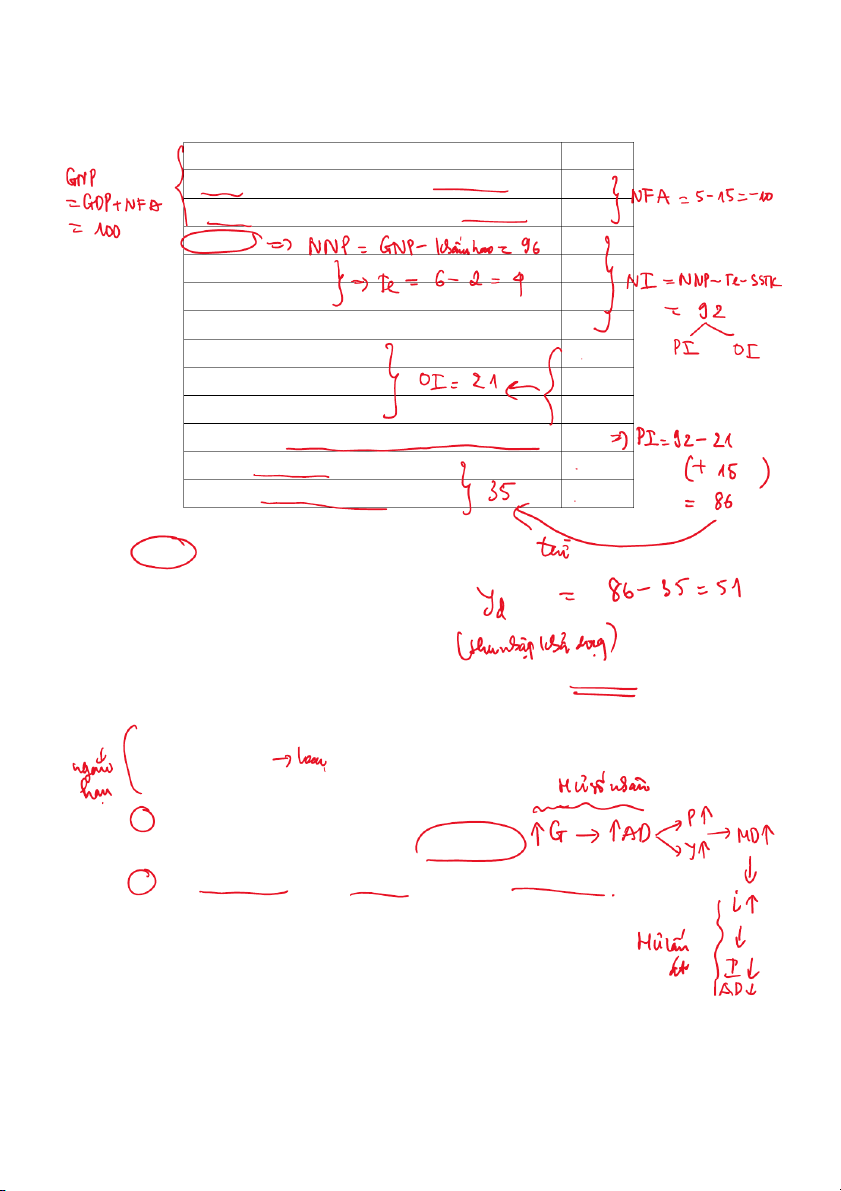 GNP
= GDP + NFA
= 100
NFA = 5 - 15 = -10
=> NNP = GNP - khấu hao = 96
=> Te = 6 - 2 = 4
NI = NNP - Te - SSTK
= 92
PI OI
OI = 21
=> PI = 92 - 21
(+ 15)
= 86
35
trừ
Yd = 86 - 35 = 51
(thu nhập khả dụng)
ngắn
hạn
→
H/ứ số nhân
↑G → ↑AD P↑ → MD↑
Y↑
↓
i↑
H/ứ lấn
↓
át
I↓
AD↓